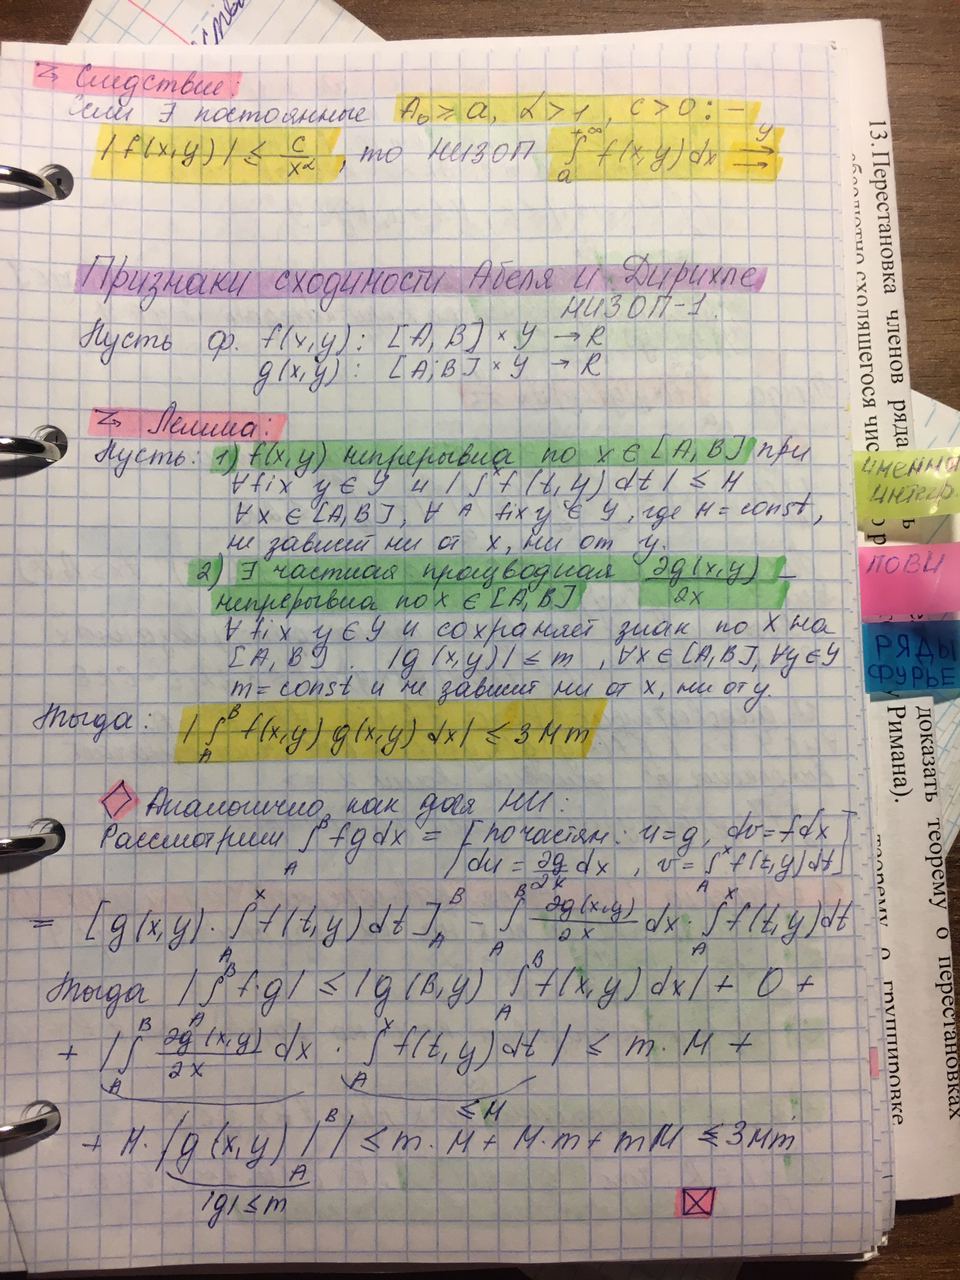 Следствие:
Если ∃ постоянные A₀ ≥ a, α > 1, c > 0 : –
|f(x,y)| ≤ c/x^α, то НИЗОП ∫_a^{+∞} f(x,y) dx ⇉^Y
Признаки сходимости Абеля и Дирихле
НИЗОП-1.
Пусть ф. f(x,y) : [A,B] × Y → R
g(x,y) : [A;B] × Y → R
Лемма:
Пусть: 1) f(x,y) непрерывна по x ∈ [A,B] при
∀ fix y ∈ Y и |∫_A^x f(t,y) dt| ≤ M
∀x ∈ [A,B], ∀ fix y ∈ Y, где M = const,
не зависит ни от x, ни от y.
2) ∃ частная производная ∂g(x,y)/∂x –
непрерывна по x ∈ [A,B]
∀ fix y ∈ Y и сохраняет знак по x на
[A,B]. |g(x,y)| ≤ m, ∀x ∈ [A,B], ∀y ∈ Y
m = const и не зависит ни от x, ни от y.
Тогда: |∫_A^B f(x,y) g(x,y) dx| ≤ 3Mm.
Аналогично, как для НИ:
Рассмотрим ∫_A^B fg dx = [по частям: u = g, dv = f dx
du = ∂g/∂x dx, v = ∫_A^x f(t,y) dt]
= [g(x,y) · ∫_A^x f(t,y) dt]_A^B - ∫_A^B ∂g(x,y)/∂x dx · ∫_A^x f(t,y) dt
Тогда |∫_A^B f·g| ≤ |g(B,y) ∫_A^B f(x,y) dx| + 0 +
+ |∫_A^B ∂g(x,y)/∂x dx · ∫_A^x f(t,y) dt| ≤ m · M +
≤ M
+ M · |g(x,y)|_A^B| ≤ m · M + M · m + mM ≤ 3Mm
|g| ≤ m
13. Перестановка членов ряда.
абсолютно сходящегося чис
Римана).
доказать теорему о перестановках
теорему о группировке
интегр.
ПОВИ
РЯДЫ
ФУРЬЕ